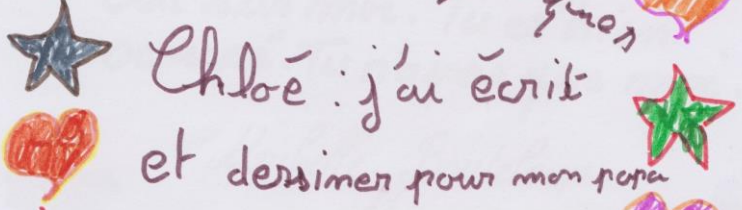 Chloé : j'ai écrit
et dessiner pour mon papa